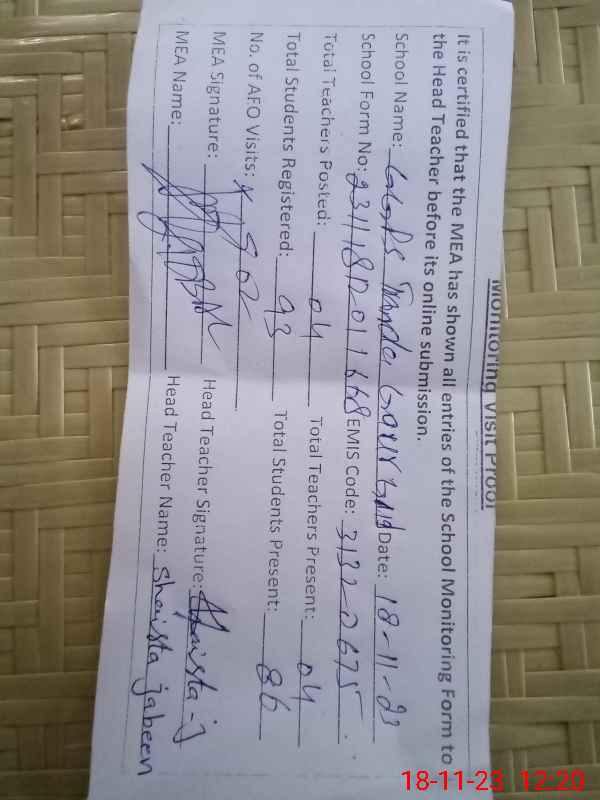 Monitoring Visit Proof
It is certified that the MEA has shown all entries of the School Monitoring Form to
the Head Teacher before its online submission.
School Name: GGPS Date: 18-11-23
School Form No: EMIS Code: 31322675
Total Teachers Posted: 04 Total Teachers Present: 04
Total Students Registered: 93 Total Students Present: 86
No. of AFO Visits:
MEA Signature: Head Teacher Signature: Shaista-j
MEA Name: Head Teacher Name: Shaista jabeen
18-11-23 12:20